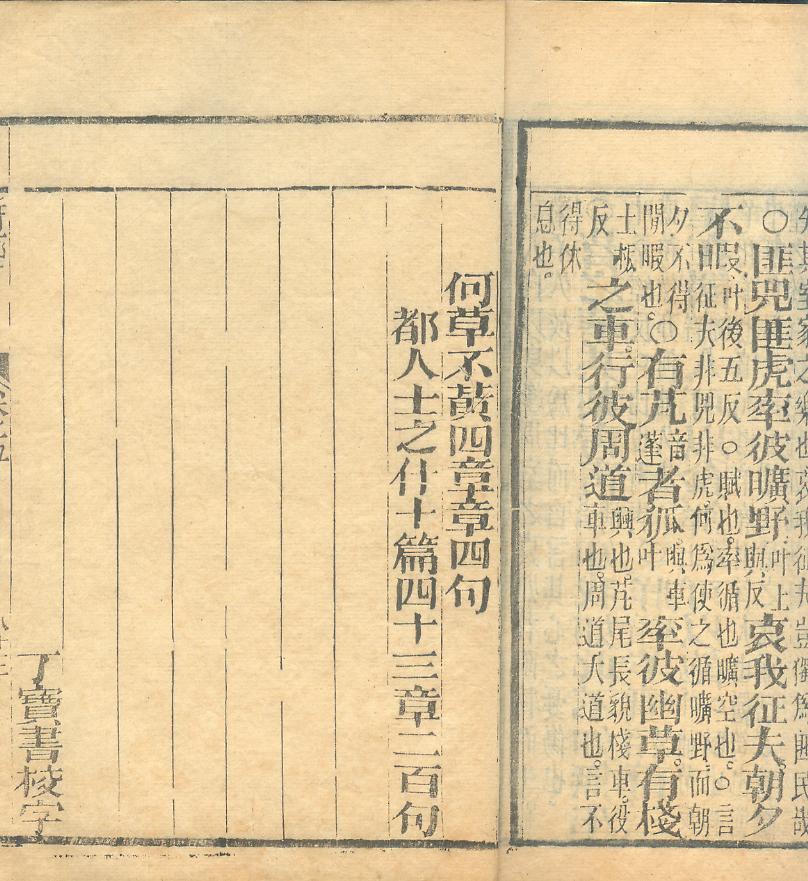 失其室家之樂也哀我征夫豈獨爲匪民哉
○匪兕匪虎率彼曠野叶上與反哀我征夫朝夕
不暇叶後五反○賦也率循也曠空也○言曰征夫非兕非虎何爲使之循曠野而朝
夕不得閒暇也。○有芃音蓬者狐與車叶率彼幽草有棧
士板反之車行彼周道興也芃尾長貌棧車役車也周道大道也言不
得休息也。
何草不黃四章章四句
都人士之什十篇四十三章二百句
丁寶書校字